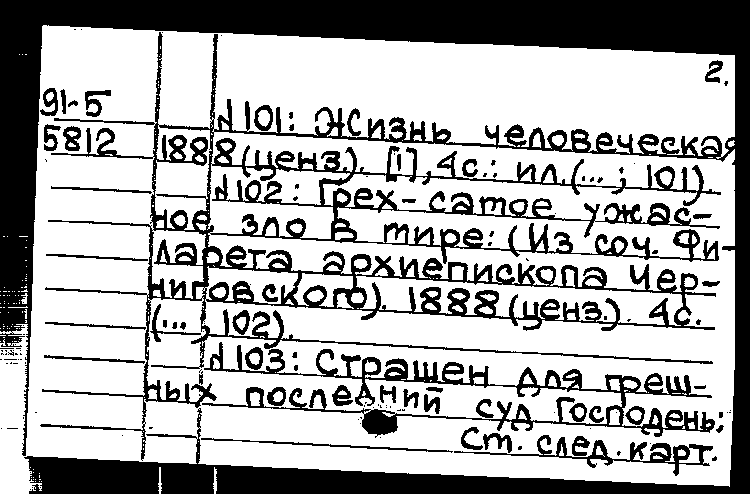 2.
91-5
5812
№101: Жизнь человеческая
1888 (ценз.). [1], 4с.: ил. (... ; 101).
№102: Грех - самое ужас-
ное зло в мире: (Из соч. Фи-
ларета, архиепископа Чер-
ниговского). 1888 (ценз.). 4с.
(... , 102).
№103: Страшен для греш-
ных последний суд Господень:
См. след. карт.